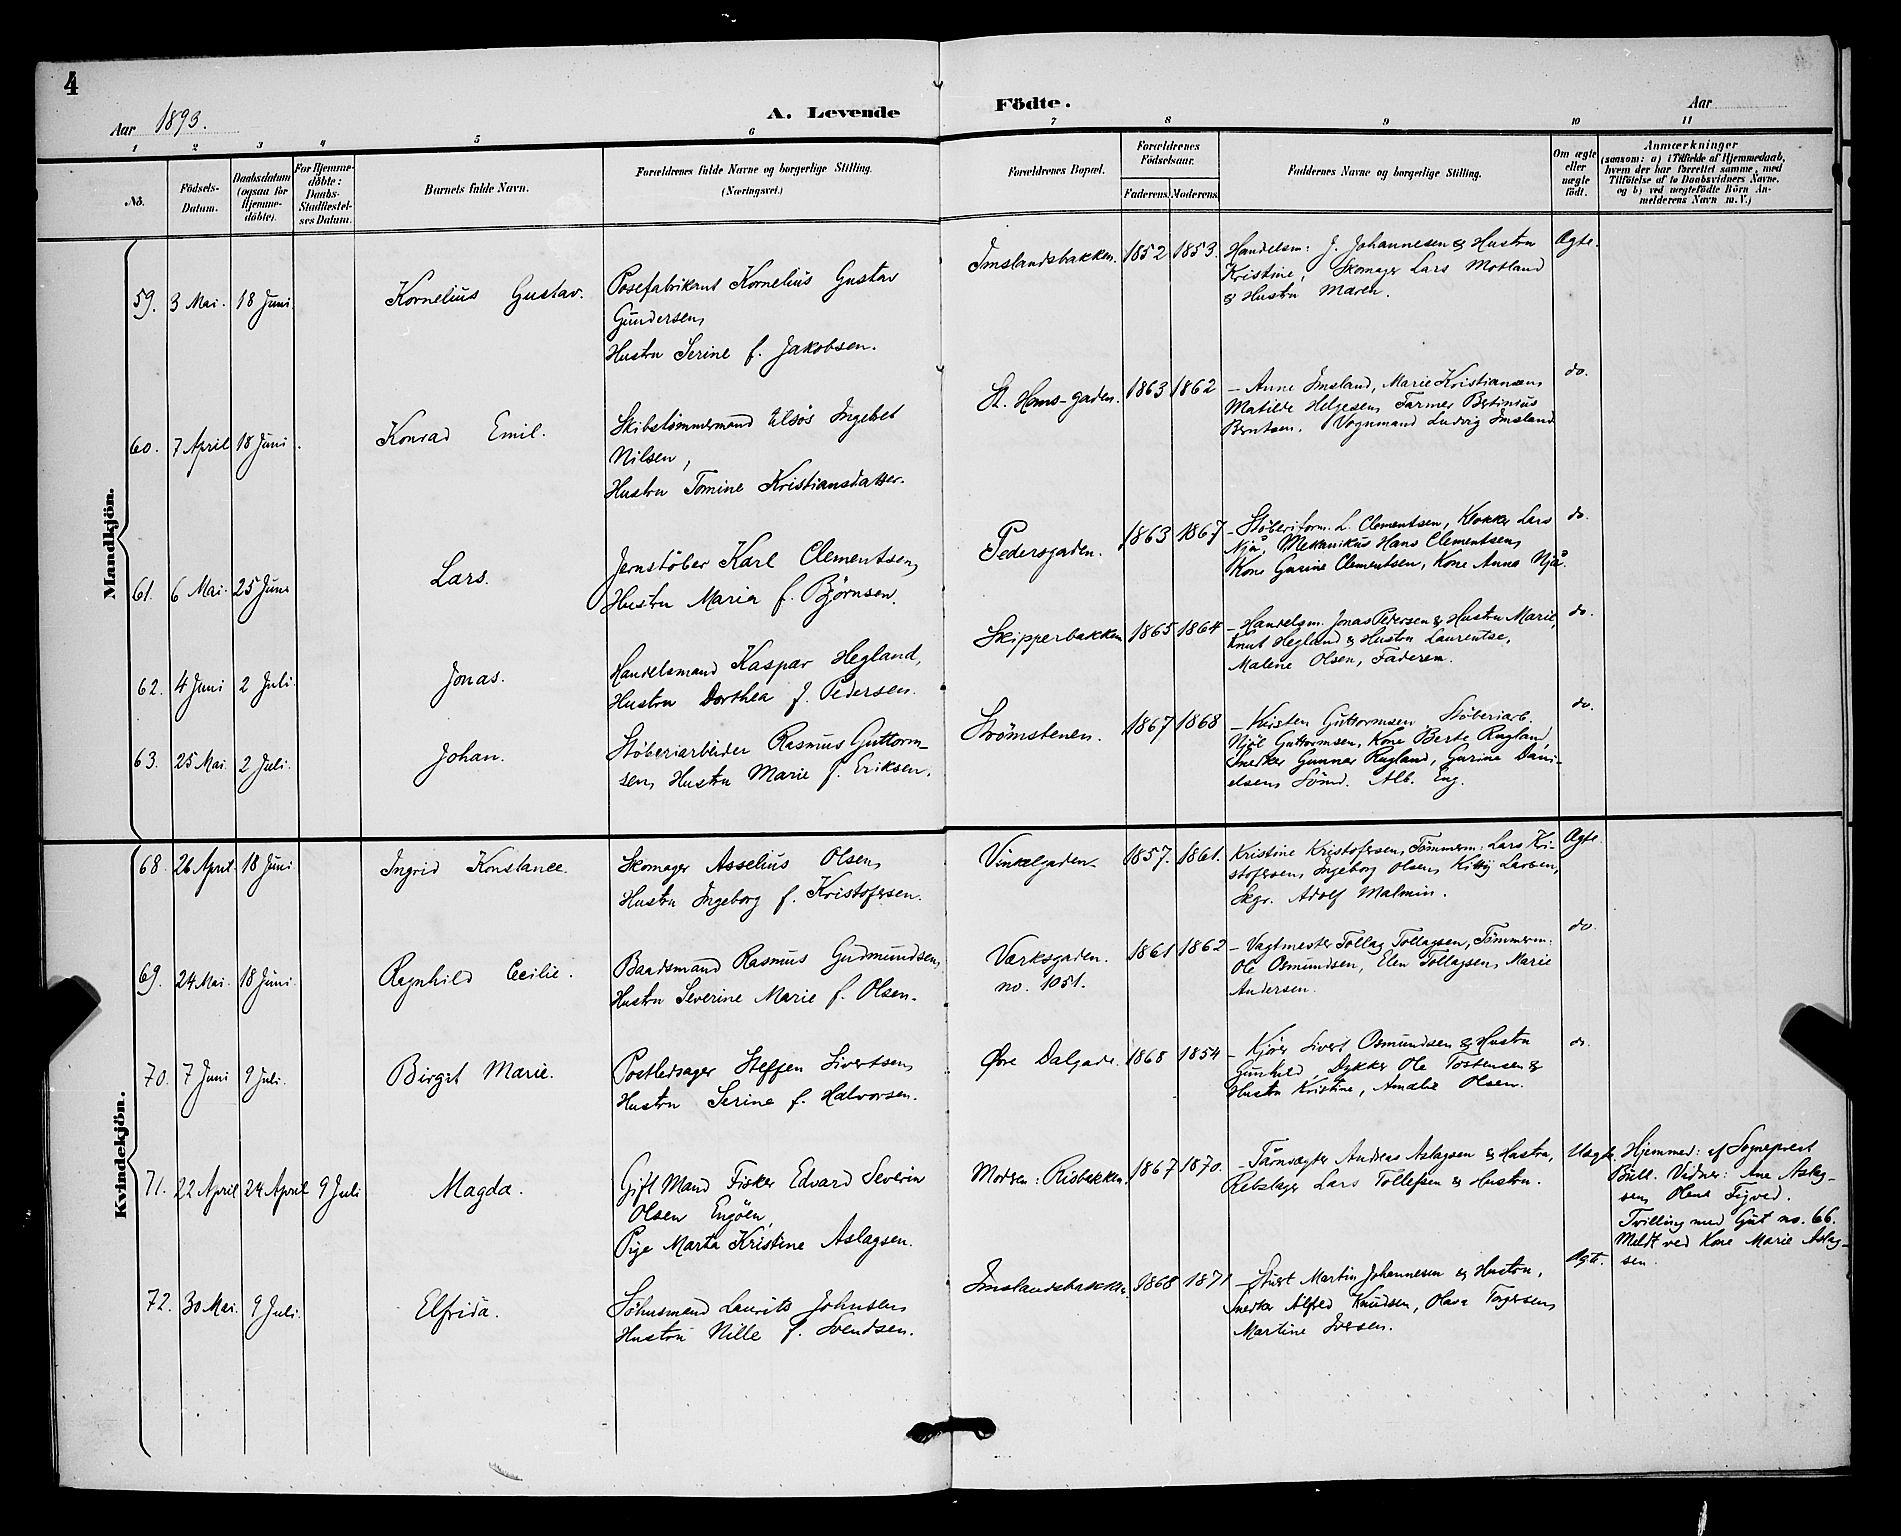 4
A. Levende Födte.
Aar 1893.
Aar
1 2 3 4 5 6 7 8 9 10 11
No.
Födsels-
Datum.
Daabsdatum
(ogsaa for
Hjemme-
döbte).
For Hjemme-
döbte:
Daabs-
Stadfæstel-
ses Datum.
Barnets fulde Navn.
Forældrenes fulde Navne og borgerlige Stilling.
(Næringsvei.)
Forældrenes Bopæl.
Forældrenes
Födselsaar.
Faderens. Moderens.
Faddernes Navne og borgerlige Stilling.
Om ægte
eller
uægte
födt.
Anmærkninger
(saasom: a) i Tilfælde af Hjemmedaab,
hvem der har forrettet samme, med
Tilföielse af to Daabsvidners Navne,
og b) ved uægtefödte Börn An-
melderens Navn m. V.)
Mandkjön.
59. 3 Mai. 18 Juni
Kornelius Gustav.
Posefabrikant Kornelius Gustav
Gundersen,
Hustru Serine f. Jakobsen.
Imslandsbakken. 1852 1853.
Handelsm: J. Johannesen & Hustru
Kristine, Skomager Lars Motland
& Hustru Maren.
Ægte.
60. 7 April 18 Juni.
Konrad Emil.
Skibstömmermand Elsös Ingebret
Nilsen,
Hustru Tomine Kristiansdatter.
St. Hans-gaden. 1863 1862
- Anne Imsland, Marie Kristiansen,
Matilde Helgesen, Farmer Bertinius
Berntsen. Vognmand Ludvig Imsland
do.
61. 6 Mai. 25 Juni
Lars.
Jernstöber Karl Clementsen,
Hustru Maria f. Björnsen.
Pedersgaden. 1863 1867
- Stöberiform. L. Clementsen, Klokker Lars
Njå, Mekanikus Hans Clementsen,
Kone Gurine Clementsen, Kone Anna Njå.
do.
62. 4 Juni 2 Juli.
Jonas.
Handelsmand Kaspar Hegland,
Hustru Dorthea f. Pedersen.
Skipperbakken 1865 1864
- Handelsm. Jonas Pedersen & Hustru Marie,
Knut Hegland & Hustru Laurentse,
Malene Olsen, Faderen.
do.
63. 25 Mai. 2 Juli.
Johan.
Stöberiarbeider Rasmus Guttorm-
sen, Hustru Marie f. Eriksen.
Strömstenen. 1867 1868
- Kristen Guttormsen, Stöberiarb.
Njöl Guttormsen, Kone Berte Rugland,
Snedker Gunnar Rugland, Gurine Dani-
elsen, Sömd. Alb. Eng.
do.
Kvindekjön.
68. 26 April. 18 Juni
Ingrid Konstance.
Skomager Asselius Olsen,
Hustru Ingeborg f. Kristofersen.
Vinkelgaden. 1857. 1861.
Kristine Kristofersen, Tömmerm: Lars Kri-
stofersen, Ingeborg Olsen, Kitty Larsen,
Skgr. Adolf Malmin.
Ægte.
69. 24 Mai. 18 Juni.
Ragnhild Cecilie.
Baadsmand Rasmus Gudmundsen,
Hustru Severine Marie f. Olsen.
Værksgaden. 1861 1862
no. 1051.
- Vagtmester Tollag Tollagsen, Tömmerm:
Ole Osmundsen, Elen Tollagsen, Marie
Andersen.
do.
70. 7 Juni 9 Juli.
Birgit Marie.
Postledsager Steffen Sivertsen,
Hustru Serine f. Halvorsen.
Øvre Dalgade. 1868 1854
- Kjörer Sivert Osmundsen & Hustru
Gunhild, Dykker Ole Tostensen &
Hustru Kristine, Amalie Olsen.
do.
71. 22 April 24 April 9 Juli
Magda.
Gift Mand Fisker Edvard Severin
Olsen Engöen,
Pige Marta Kristine Aslagsen.
Modren: Risbakken 1867 1870.
- Tårnvægter Andreas Aslagsen & Hustru,
Rebslager Lars Tollefsen & Hustru.
Uægt.
Hjemmed: af Sogneprest
Bull. Vidner: Ane Aslag-
sen, Olene Tigved.
Tvilling med Gut no. 66.
Meldt ved Kone Marie Aslag-
sen.
72. 30 Mai. 9 Juli.
Elfrida.
Söhusmand Laurits Johnsen,
Hustru Nille f. Svendsen.
Imslandsbakken 1868 1871
- Stuert Martin Johannesen & Hustru,
Snedker Alfred Knudsen, Olava Torgersen,
Martine Iversen.
Ægte.